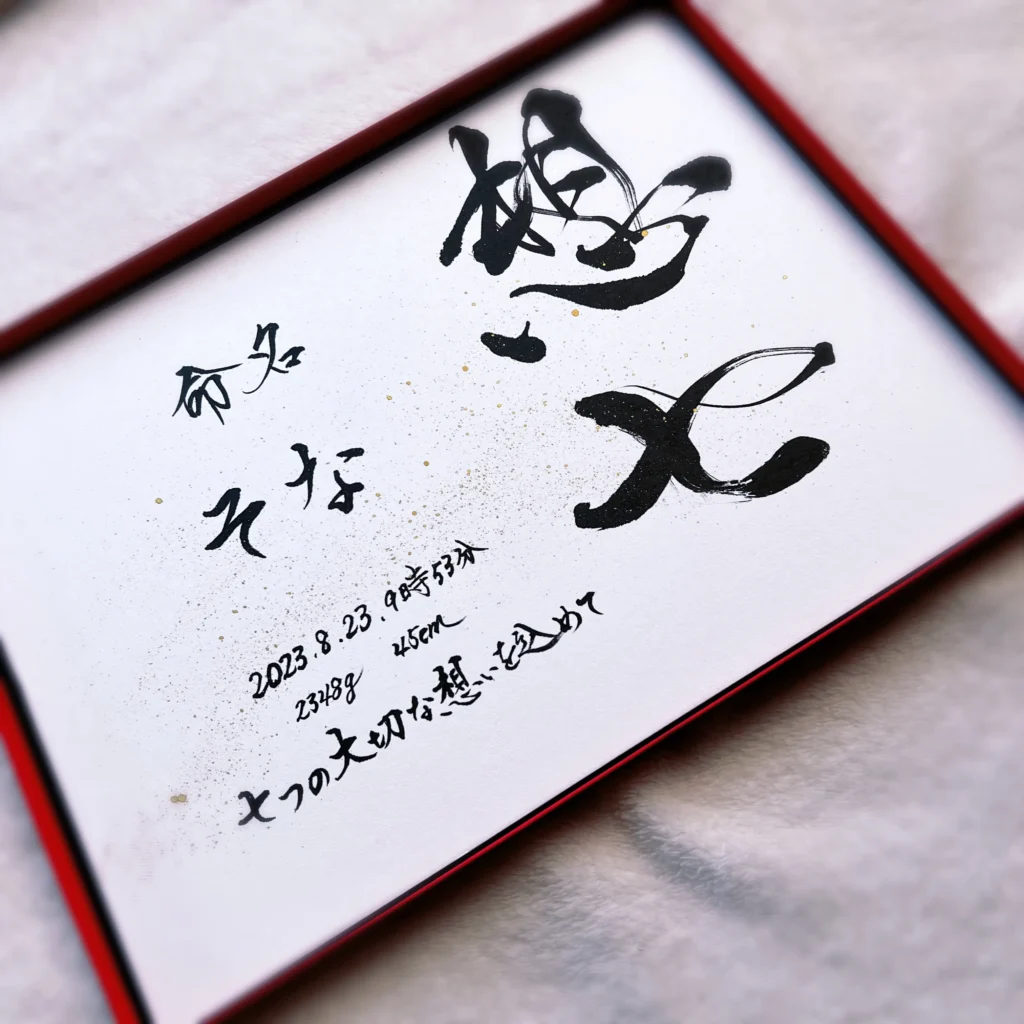 想七
命名
そな
2023.8.23.9時53分
2348g 45cm
七つの大切な想いを込めて